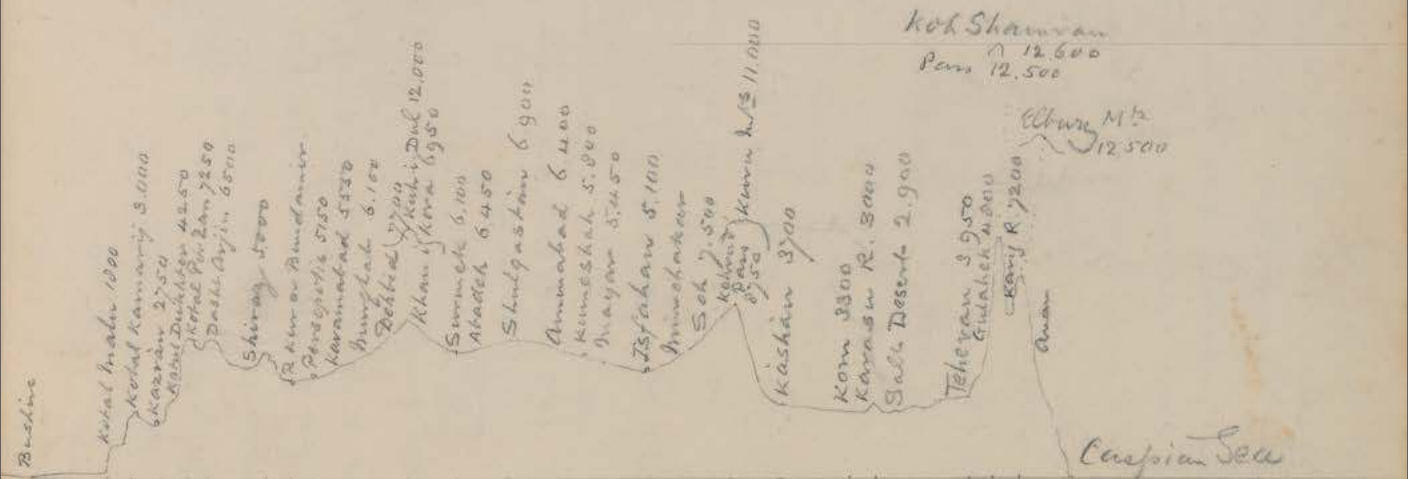 Bushire
Kotal Malu 1800
Kotal Kamarij 3.000
Kazrún 2750
Kotal Dukhter 4250
Kotal Pir Zan 7250
Dasht Arjin 6500
Shiraz 5000
R. Kur or Bundamir
Persepolis 5150
Kavamabad 5550
Murghab 6.100
Dehbid 7700
Kuh i Dul 12.000
Khan i Khora 6950
Surmek 6,100
Abadeh 6,450
Shulgastán 6900
Aminabad 6.400
Kumeshah 5.800
Mayar 5.450
Isfahan 5,100
Murchakar
Soh 7.500
Kohrud Pass 8750
Kuru Mts 11.000
Kashán 3700
Kom 3300
Karasu R. 3000
Salt Desert 2.900
Teheran 3950
Gulahek 4800
Karij R. 7200
Koh Shamran
12.600
Pass 12.500
Elburz Mts
12500
Caspian Sea